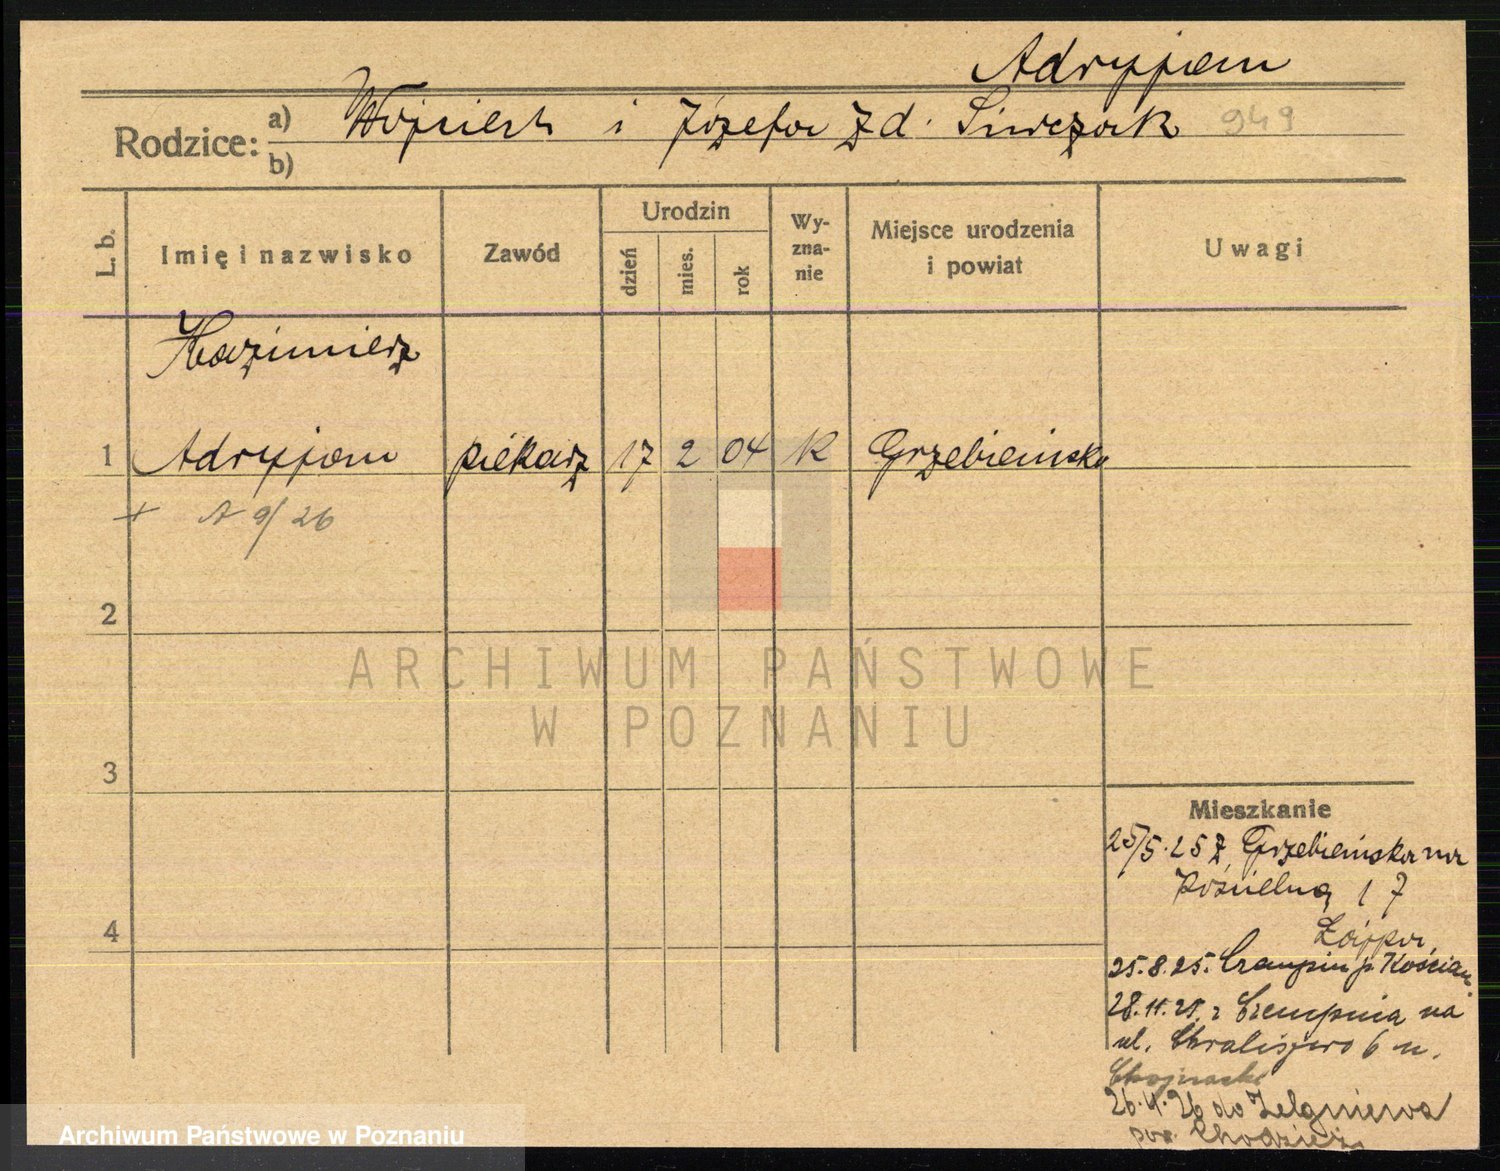 Adryjam
Rodzice: a) Wojciech i Józefa z d. Siwczak 949
b)
L. b. Imię i nazwisko Zawód Urodzin dzień mies. rok Wy-zna-nie Miejsce urodzenia i powiat Uwagi
Kazimierz
1 Adryjam piekarz 17 2 04 K Grzebieńsko
+ A 9/26
2
ARCHIWUM PAŃSTWOWE
W POZNANIU
3
Mieszkanie
25/5.25 z Grzebieńska na
Kościelną 17
4
25.8.25. Czempiń p. Kościan
28.11.25. z Czempinia na
ul. 6 u.
Chojnacki
26.4.26 do Zelgniewa
pow. Chodzież
Archiwum Państwowe w Poznaniu